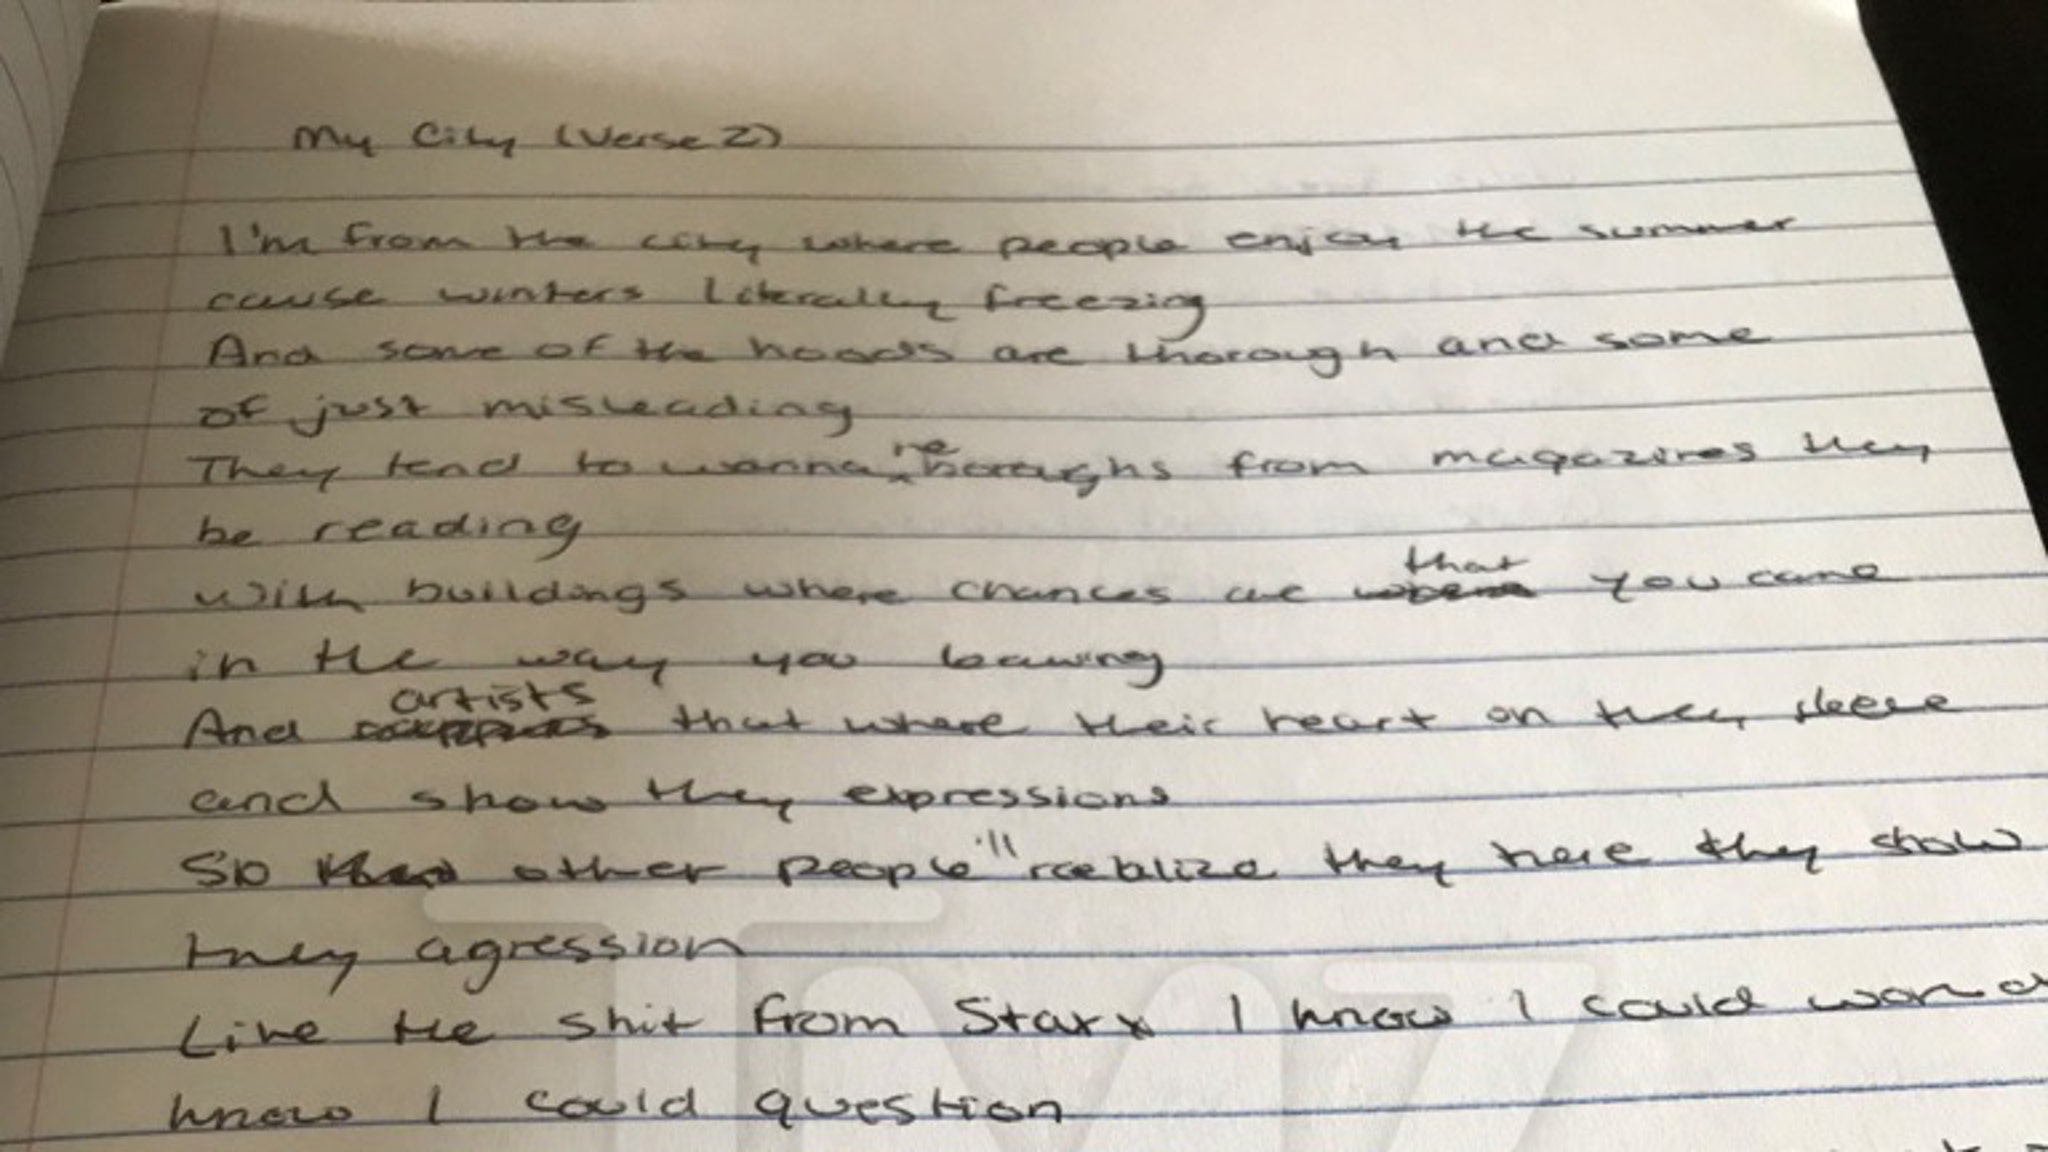 My City (Verse 2)
I'm from the city where people enjoy the summer
cause winters literally freezing
And some of the hoods are thorough and some
of just misleading
They tend to wanna re boroughs from magazines they
be reading
With buildings where chances are that you came
in the way you leaving
And artists that where their heart on they sleeve
and show they expressions
So other people'll realize they here they show
they agression
Like the shit from Starx I know I could
know I could question
TMZ